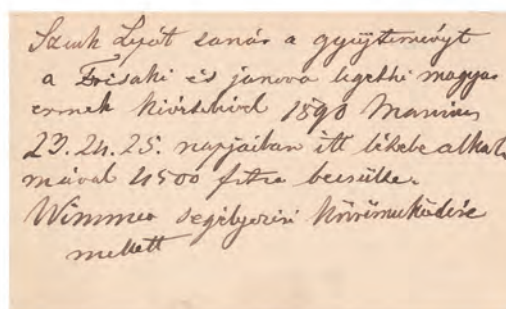 Szuk Lipót tanár a gyüjteményt
a Trisaki és janova ligethi magyar
érmek kivételével 1890 Marcius
23. 24. 25. napjaiban itt létekor alkal
mával 4500 frtra becsülte.
Wimmer segélyezési közremüködése
mellett